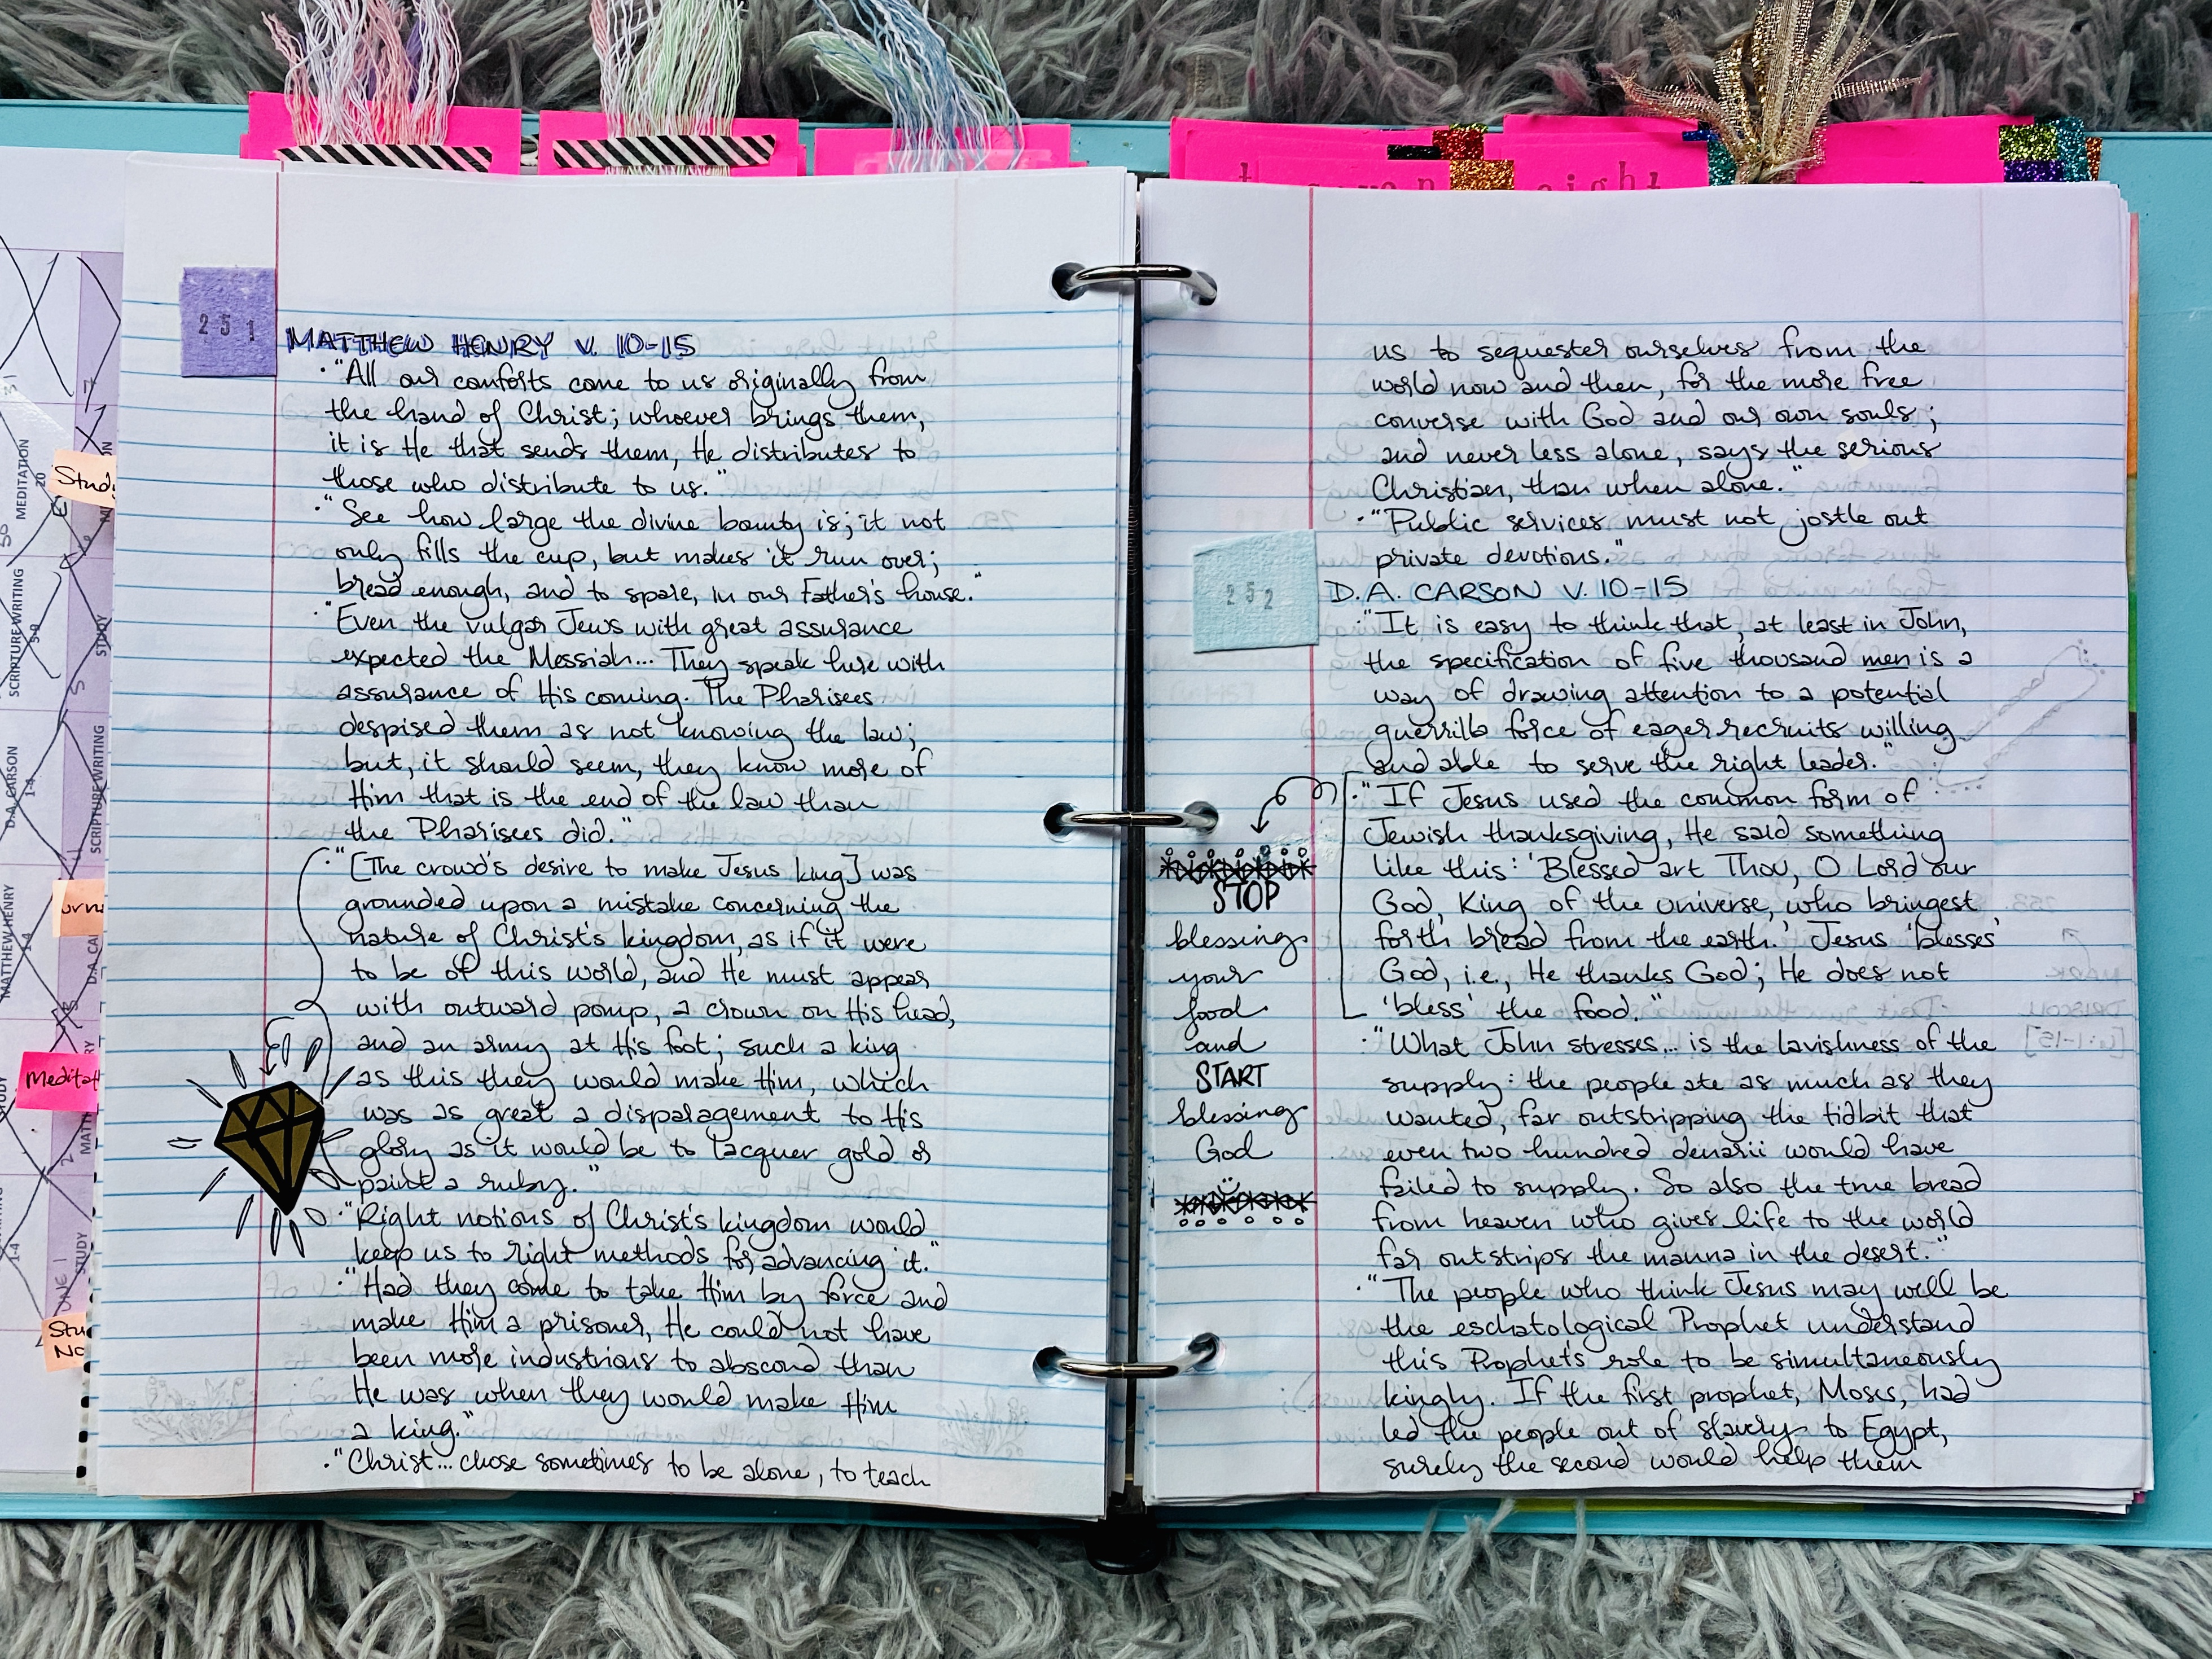 251
MATTHEW HENRY V. 10-15
• "All our comforts come to us originally from
the hand of Christ; whoever brings them,
it is He that sends them, He distributes to
those who distribute to us."
• "See how large the divine bounty is; it not
only fills the cup, but makes it run over;
bread enough, and to spare, in our Father's house."
• "Even the vulgar Jews with great assurance
expected the Messiah... They speak here with
assurance of His coming. The Pharisees
despised them as not knowing the law;
but, it should seem, they know more of
Him that is the end of the law than
the Pharisees did."
• "[The crowd's desire to make Jesus king] was
grounded upon a mistake concerning the
nature of Christ's kingdom, as if it were
to be of this world, and He must appear
with outward pomp, a crown on His head,
and an army at His foot; such a king
as this they would make Him, which
was as great a disparagement to His
glory as it would be to lacquer gold or
paint a ruby."
• "Right notions of Christ's kingdom would
keep us to right methods for advancing it."
• "Had they come to take Him by force and
make Him a prisoner, He could not have
been more industrious to abscond than
He was when they would make Him
a king."
• "Christ... chose sometimes to be alone, to teach
us to sequester ourselves from the
world now and then, for the more free
converse with God and our own souls;
and never less alone, says the serious
Christian, than when alone."
• "Public services must not jostle out
private devotions."
252
D.A. CARSON V. 10-15
• "It is easy to think that, at least in John,
the specification of five thousand men is a
way of drawing attention to a potential
guerrilla force of eager recruits willing
and able to serve the right leader."
• "If Jesus used the common form of
Jewish thanksgiving, He said something
like this: 'Blessed art Thou, O Lord our
God, King of the universe, who bringest
forth bread from the earth.' Jesus 'blesses'
God, i.e., He thanks God; He does not
'bless' the food."
STOP
blessing
your
food
and
START
blessing
God
• "What John stresses... is the lavishness of the
supply: the people ate as much as they
wanted, far outstripping the tidbit that
even two hundred denarii would have
failed to supply. So also the true bread
from heaven who gives life to the world
far outstrips the manna in the desert."
• "The people who think Jesus may well be
the eschatological Prophet understand
this Prophet's role to be simultaneously
kingly. If the first prophet, Moses, had
led the people out of slavery to Egypt,
surely the second would help them
MEDITATION
20
SCRIPTURE WRITING
5-9
STUDY
D.A. CARSON
1-4
SCRIPTURE WRITING
MATTHEW HENRY
1-4
D.A. CA
STUDY
1-4
Stud
Meditat
Stu
No
eight